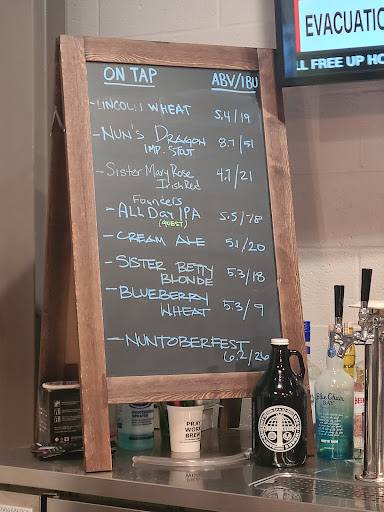 EVACUATIO
LL FREE UP HO
ON TAP ABV/IBU
- LINCOLN WHEAT 5.4/19
- NUN'S DRAGON 8.7/51
IMP. STOUT
- Sister Mary Rose 4.7/21
Irish Red
Founders
- ALL DAY IPA 5.5/78
(GUEST)
- CREAM ALE 5.1/20
- SISTER BETTY 5.3/18
BLONDE
- BLUEBERRY 5.3/9
WHEAT
- NUNTOBERFEST
6.2/26
PRAY
WORK
BREW
Blue Chair
BAY